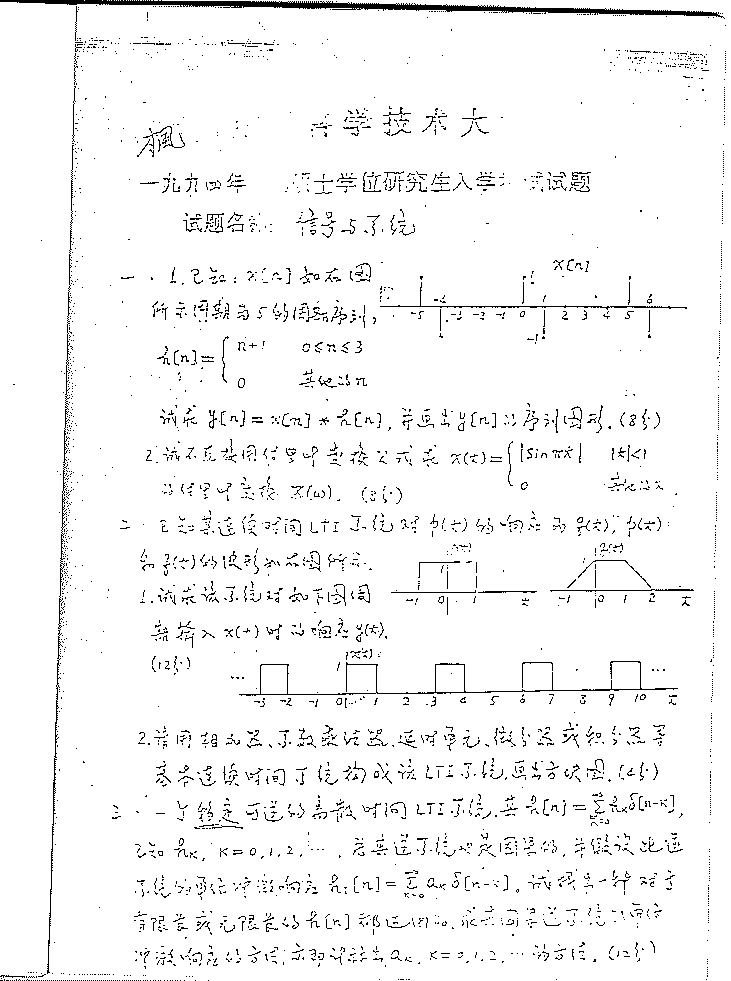 枫
学技术大
一九九四年 硕士学位研究生入学 试试题
试题名称: 信号与系统
一. 1.已知: x[n] 如右图
所示周期为5的周期序列,
h[n]={ n+1 0≤n≤3
0 其他的n
x[n]
1
-5 -4 -3 -2 -1 0 1 2 3 4 5 6
-1
试求 y[n]=x[n]*h[n], 并画出y[n]的序列图形. (8分)
2.试不直接用付里叶变换公式求 x(t)={ |Sinπt| |t|<1
0 其他的t
的付里叶变换 X(ω). (8分)
二. 已知某连续时间LTI系统对p(t)的响应为q(t), p(t)
和q(t)的波形如右图所示.
p(t)
1
-1 0 1 t
q(t)
1
-1 0 1 2 t
1.试求该系统对如下图周
期输入x(t)时的响应y(t).
(12分)
x(t)
1
... -3 -2 -1 0 1 2 3 4 5 6 7 8 9 10 t ...
2.请用相加器、系数乘法器、延时单元、微分器或积分器等
基本连续时间系统构成该LTI系统,画出方块图. (4分)
三. 一个稳定可逆的离散时间LTI系统,其h[n]=∑hₖδ[n-k],
k=0
已知 hₖ, k=0,1,2,…, 若其逆系统也是因果的, 并假设此逆
系统的单位冲激响应 hᵢ[n]=∑aₖδ[n-k], 试找出一种对于
k=0
有限长或无限长的h[n]都适用的,求其因果逆系统的单位
冲激响应的方法,亦即计算出aₖ, k=0,1,2,…的方法. (12分)